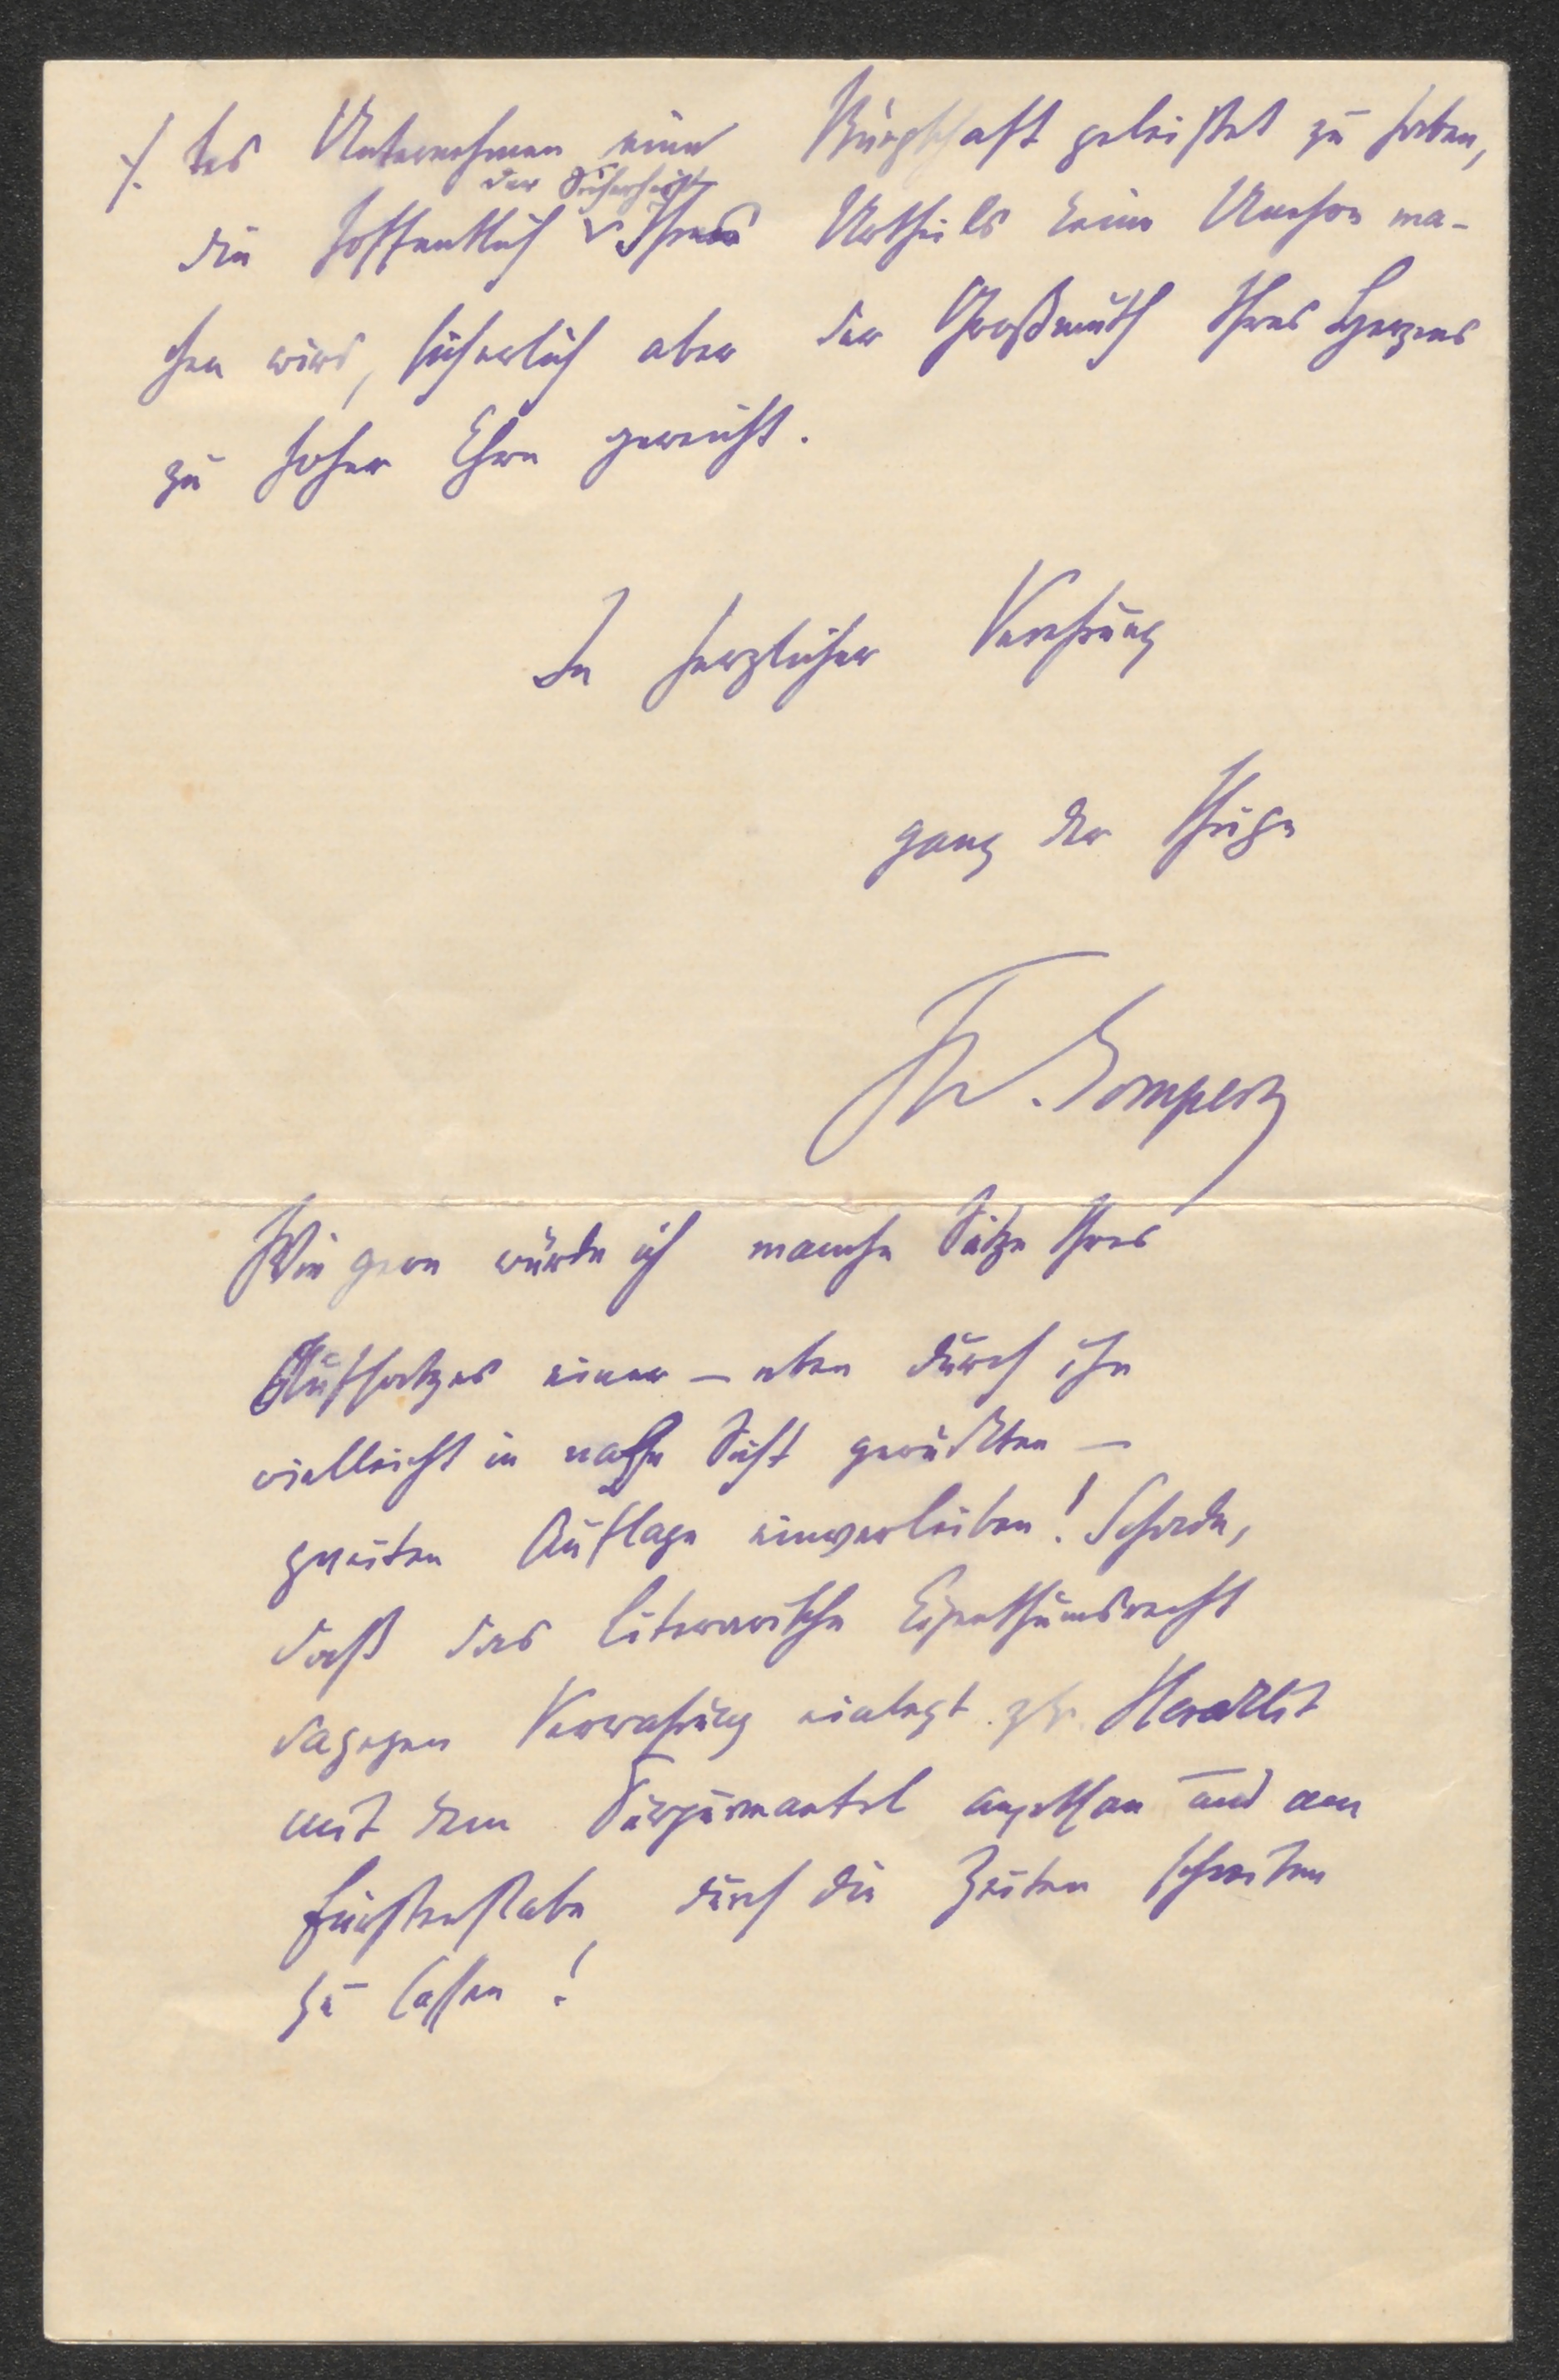 ./. tes Unternehmen eine Bürgschaft geleistet zu haben,
der Sicherheit
die hoffentlich Ihres Urtheils keine Unehre ma-
chen wird, sicherlich aber der Großmuth Ihres Herzens
zu hoher Ehre gereicht.
In herzlicher Verehrung
ganz der Ihrige
Th. Gomperz
Wie gern würde ich manche Sätze Ihres
Aufsatzes einer – eben durch ihn
vielleicht in nahe Sicht gerückten –
zweiten Auflage einverleiben! Schade,
daß das literarische Eigenthumsrecht
dagegen Verwahrung einlegt Heraklit
mit dem Purpurmantel angethan und am
Fürstenstabe durch die Zeiten schreiten
zu lassen!